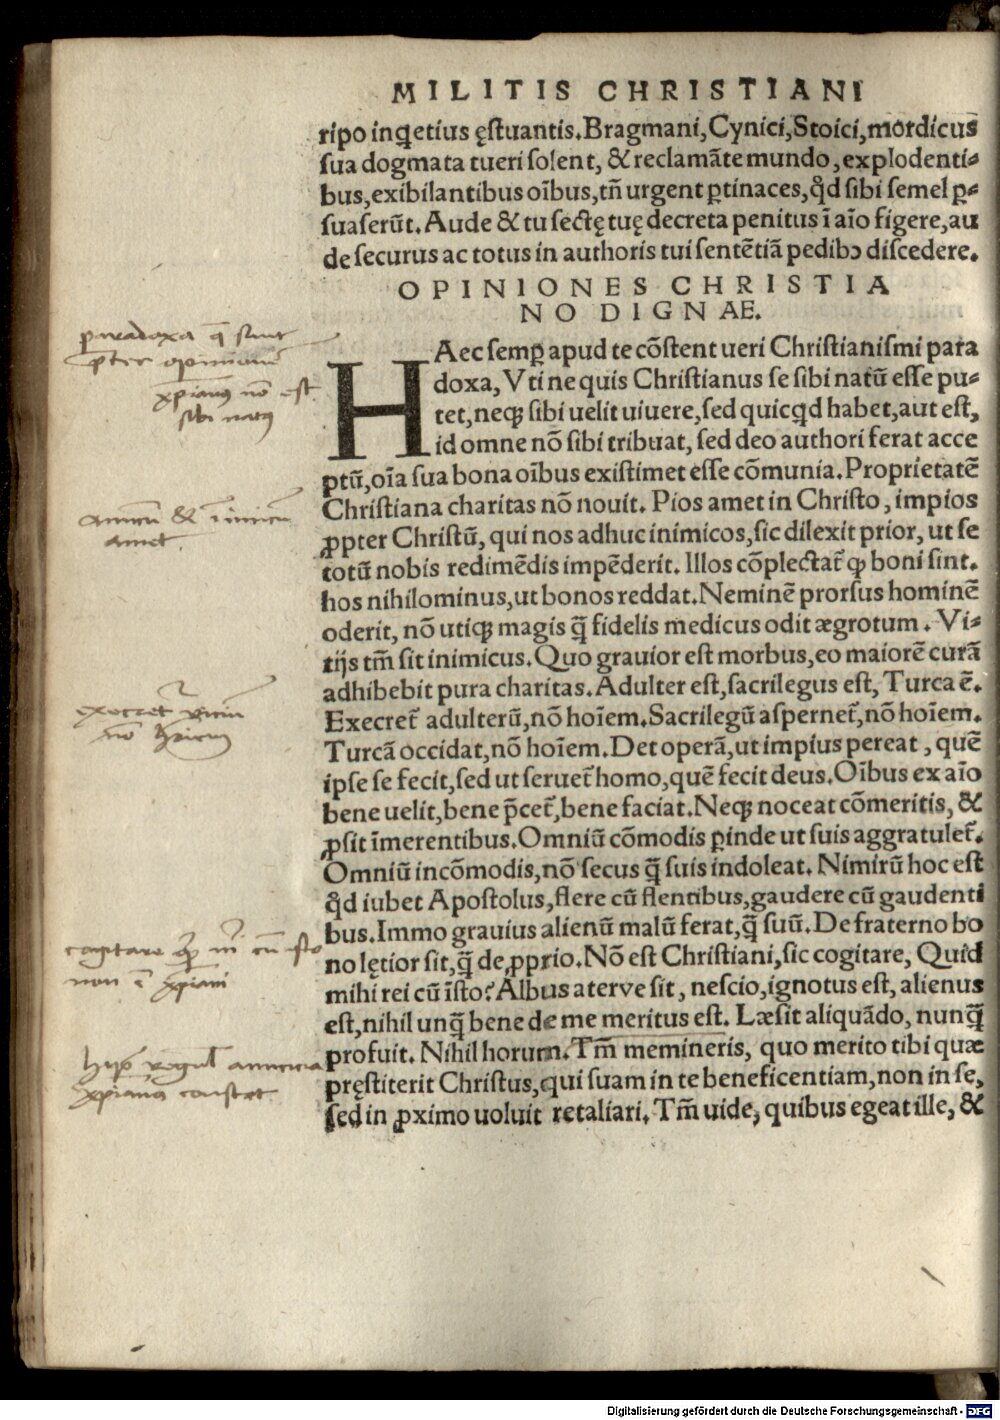 MILITIS CHRISTIANI
ripo inq̃etius ęstuantis.Bragmani,Cynici,Stoici,mordicus
sua dogmata tueri solent, & reclamãte mundo, explodenti⸗
bus, exibilantibus oĩbus, tñ urgent ꝑtinaces, q̊d sibi semel ꝑ⸗
suaserũt. Aude & tu sectę tuę decreta penitus ĩ aĩo figere, au
de securus ac totus in authoris tui sentẽtiã pedibꝫ discedere.
OPINIONES CHRISTIA
NO DIGNAE.
paradoxa q̃ sunt
p̃ter opinionẽ
HAec semꝑ apud te cõstent ueri Christianismi para
doxa, Vti ne quis Christianus se sibi natũ esse pu⸗
xp̃ianus nõ est
sibi natus
tet, neqꝫ sibi uelit uiuere, sed quicq̊d habet, aut est,
id omne nõ sibi tribuat, sed deo authori ferat acce
ptũ, oĩa sua bona oĩbus existimet esse cõmunia. Proprietatẽ
Christiana charitas nõ nouit. Pios amet in Christo, impios
amicũ & inimicũ
amet.
ꝓpter Christũ, qui nos adhuc inimicos, sic dilexit prior, ut se
totũ nobis redimẽdis impẽderit. Illos cõplectat̃ ꝙ boni sint.
hos nihilominus, ut bonos reddat. Neminẽ prorsus hominẽ
oderit, nõ utiqꝫ magis q̃ fidelis medicus odit ægrotum. Vi⸗
tijs tm̃ sit inimicus. Quo grauior est morbus, eo maiorẽ curã
adhibebit pura charitas. Adulter est, sacrilegus est, Turca ẽ.
execret̃ uiciũ
nõ hoĩem
Execret̃ adulterũ, nõ hoĩem. Sacrilegũ aspernet̃, nõ hoĩem.
Turcã occidat, nõ hoĩem. Det operã, ut impius pereat, quẽ
ipse se fecit, sed ut seruet̃ homo, quẽ fecit deus. Oĩbus ex aĩo
bene uelit, bene p̃cet̃, bene faciat. Neqꝫ noceat cõmeritis, &
ꝓsit ĩmerentibus. Omniũ cõmodis ꝑinde ut suis aggratulet̃.
Omniũ incõmodis, nõ secus q̃ suis indoleat. Nimirũ hoc est
q̊d iubet Apostolus, flere cũ flentibus, gaudere cũ gaudenti
bus. Immo grauius alienũ malũ ferat, q̃ suũ. De fraterno bo
cogitare quid mĩ cũ isto
non ẽ xp̃iani
no lętior sit, q̃ de ꝓprio. Nõ est Christiani, sic cogitare, Quid
mihi rei cũ ĩsto? Albus aterve sit, nescio, ignotus est, alienus
est, nihil unq̃ bene de me meritus est. Læsit aliquãdo, nunq̃
profuit. Nihil horum. Tm̃ memineris, quo merito tibi quæ
amicicia
xp̃iana constet
pręstiterit Christus, qui suam in te beneficentiam, non in se,
sed in ꝓximo uoluit retaliari. Tm̃ uide, quibus egeat ille, &
Digitalisierung gefördert durch die Deutsche Forschungsgemeinschaft - DFG